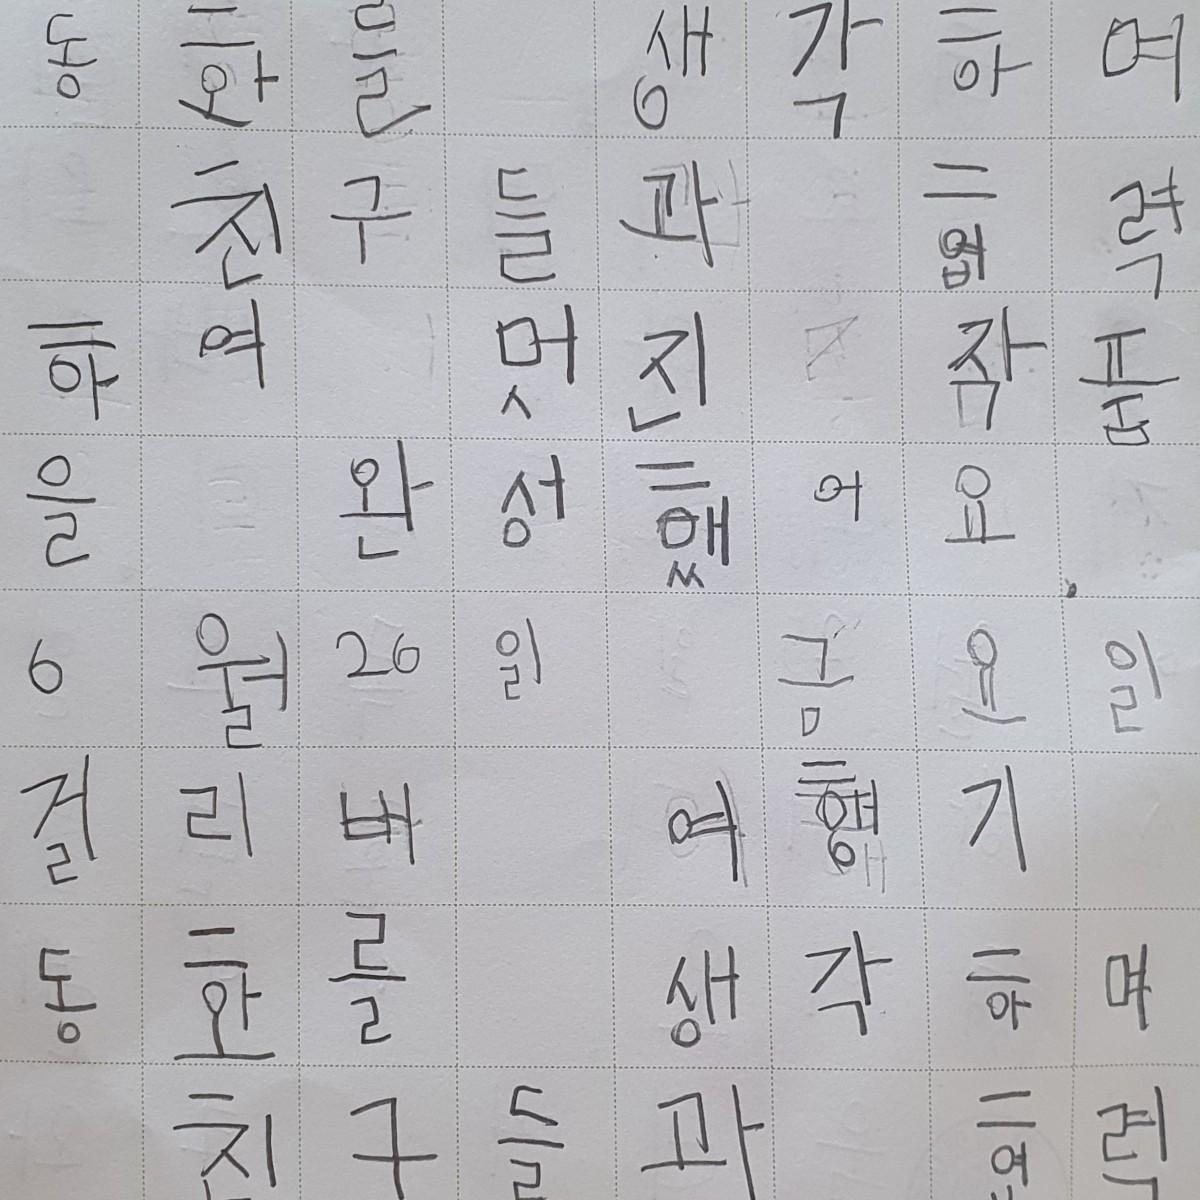 동화를 생각하며
친구들과 협력
하여 멋진 작품
을 완성했어요.
6월 26일 금요일
걸리버 여행기
동화를 생각하며
친구들과 협력